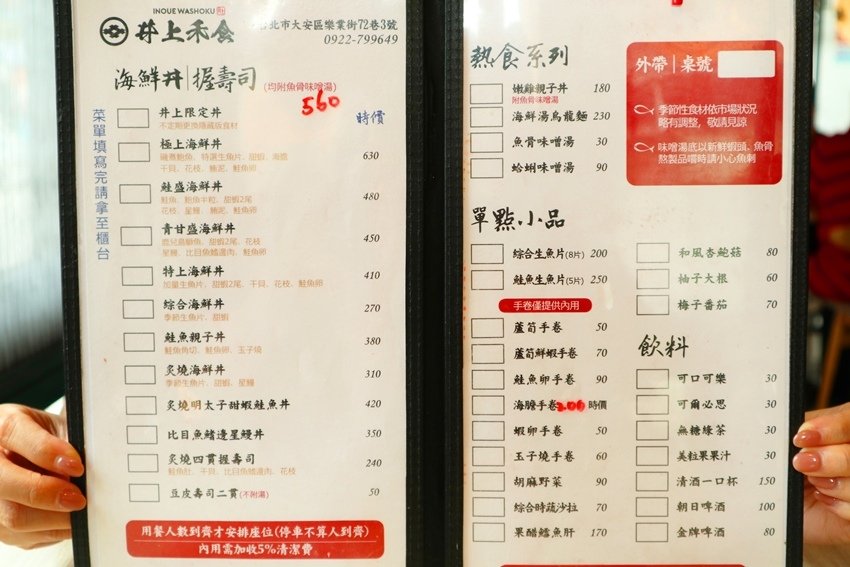 INOUE WASHOKU
井上禾食
北市大安區樂業街72巷3號
0922-799649
海鮮丼|握壽司(均附魚骨味噌湯)
560
菜單填寫完請拿至櫃台
井上限定丼 時價
不定期更換隱藏版食材
極上海鮮丼 630
干貝、花枝、鮪泥、鮭魚卵
鮭盛海鮮丼 480
鮭魚、鮑魚半粒、甜蝦2尾
花枝、星鰻、鮪泥、鮭魚卵
青甘盛海鮮丼 450
鹿兒島鰤魚、甜蝦2尾、花枝
星鰻、比目魚鰭邊肉、鮭魚卵
特上海鮮丼 410
加量生魚片、甜蝦2尾、干貝、花枝、鮭魚卵
綜合海鮮丼 270
季節生魚片、甜蝦
鮭魚親子丼 380
鮭魚角切、鮭魚卵、玉子燒
炙燒海鮮丼 310
季節生魚片、甜蝦、星鰻
炙燒明太子甜蝦鮭魚丼 420
比目魚鰭邊星鰻丼 350
炙燒四貫握壽司 240
鮭魚肚、干貝、比目魚鰭邊肉、花枝
豆皮壽司二貫(不附湯) 50
用餐人數到齊才安排座位(停車不算人到齊)
內用需加收5%清潔費
熱食系列
嫩雞親子丼 180
附魚骨味噌湯
海鮮湯烏龍麵 230
魚骨味噌湯 30
蛤蜊味噌湯 90
外帶|桌號
季節性食材依市場狀況
略有調整,敬請見諒
味噌湯底以新鮮蝦頭、魚骨
熬製品嚐時請小心魚刺
單點小品
綜合生魚片(8片) 200
鮭魚生魚片(5片) 250
手卷僅提供內用
蘆筍手卷 50
蘆筍鮮蝦手卷 70
鮭魚卵手卷 90
海膽手卷 時價
蝦卵手卷 50
玉子燒手卷 60
胡麻野菜 90
綜合時蔬沙拉 70
果醋鱈魚肝 170
和風杏鮑菇 80
柚子大根 60
梅子番茄 70
飲料
可口可樂 30
可爾必思 30
無糖綠茶 30
美粒果果汁 30
清酒一口杯 150
朝日啤酒 100
金牌啤酒 80